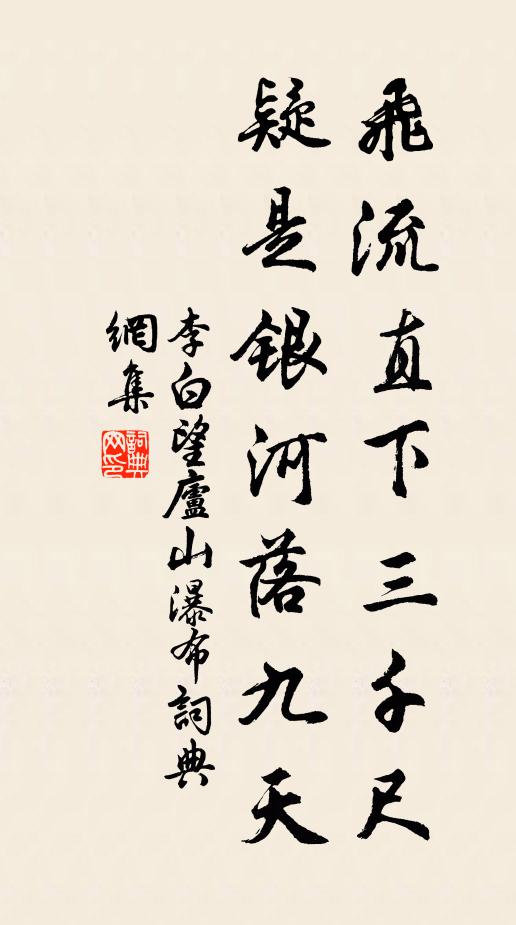 飛流直下三千尺
疑是銀河落九天
李白望廬山瀑布詞典
網集
詞典網印